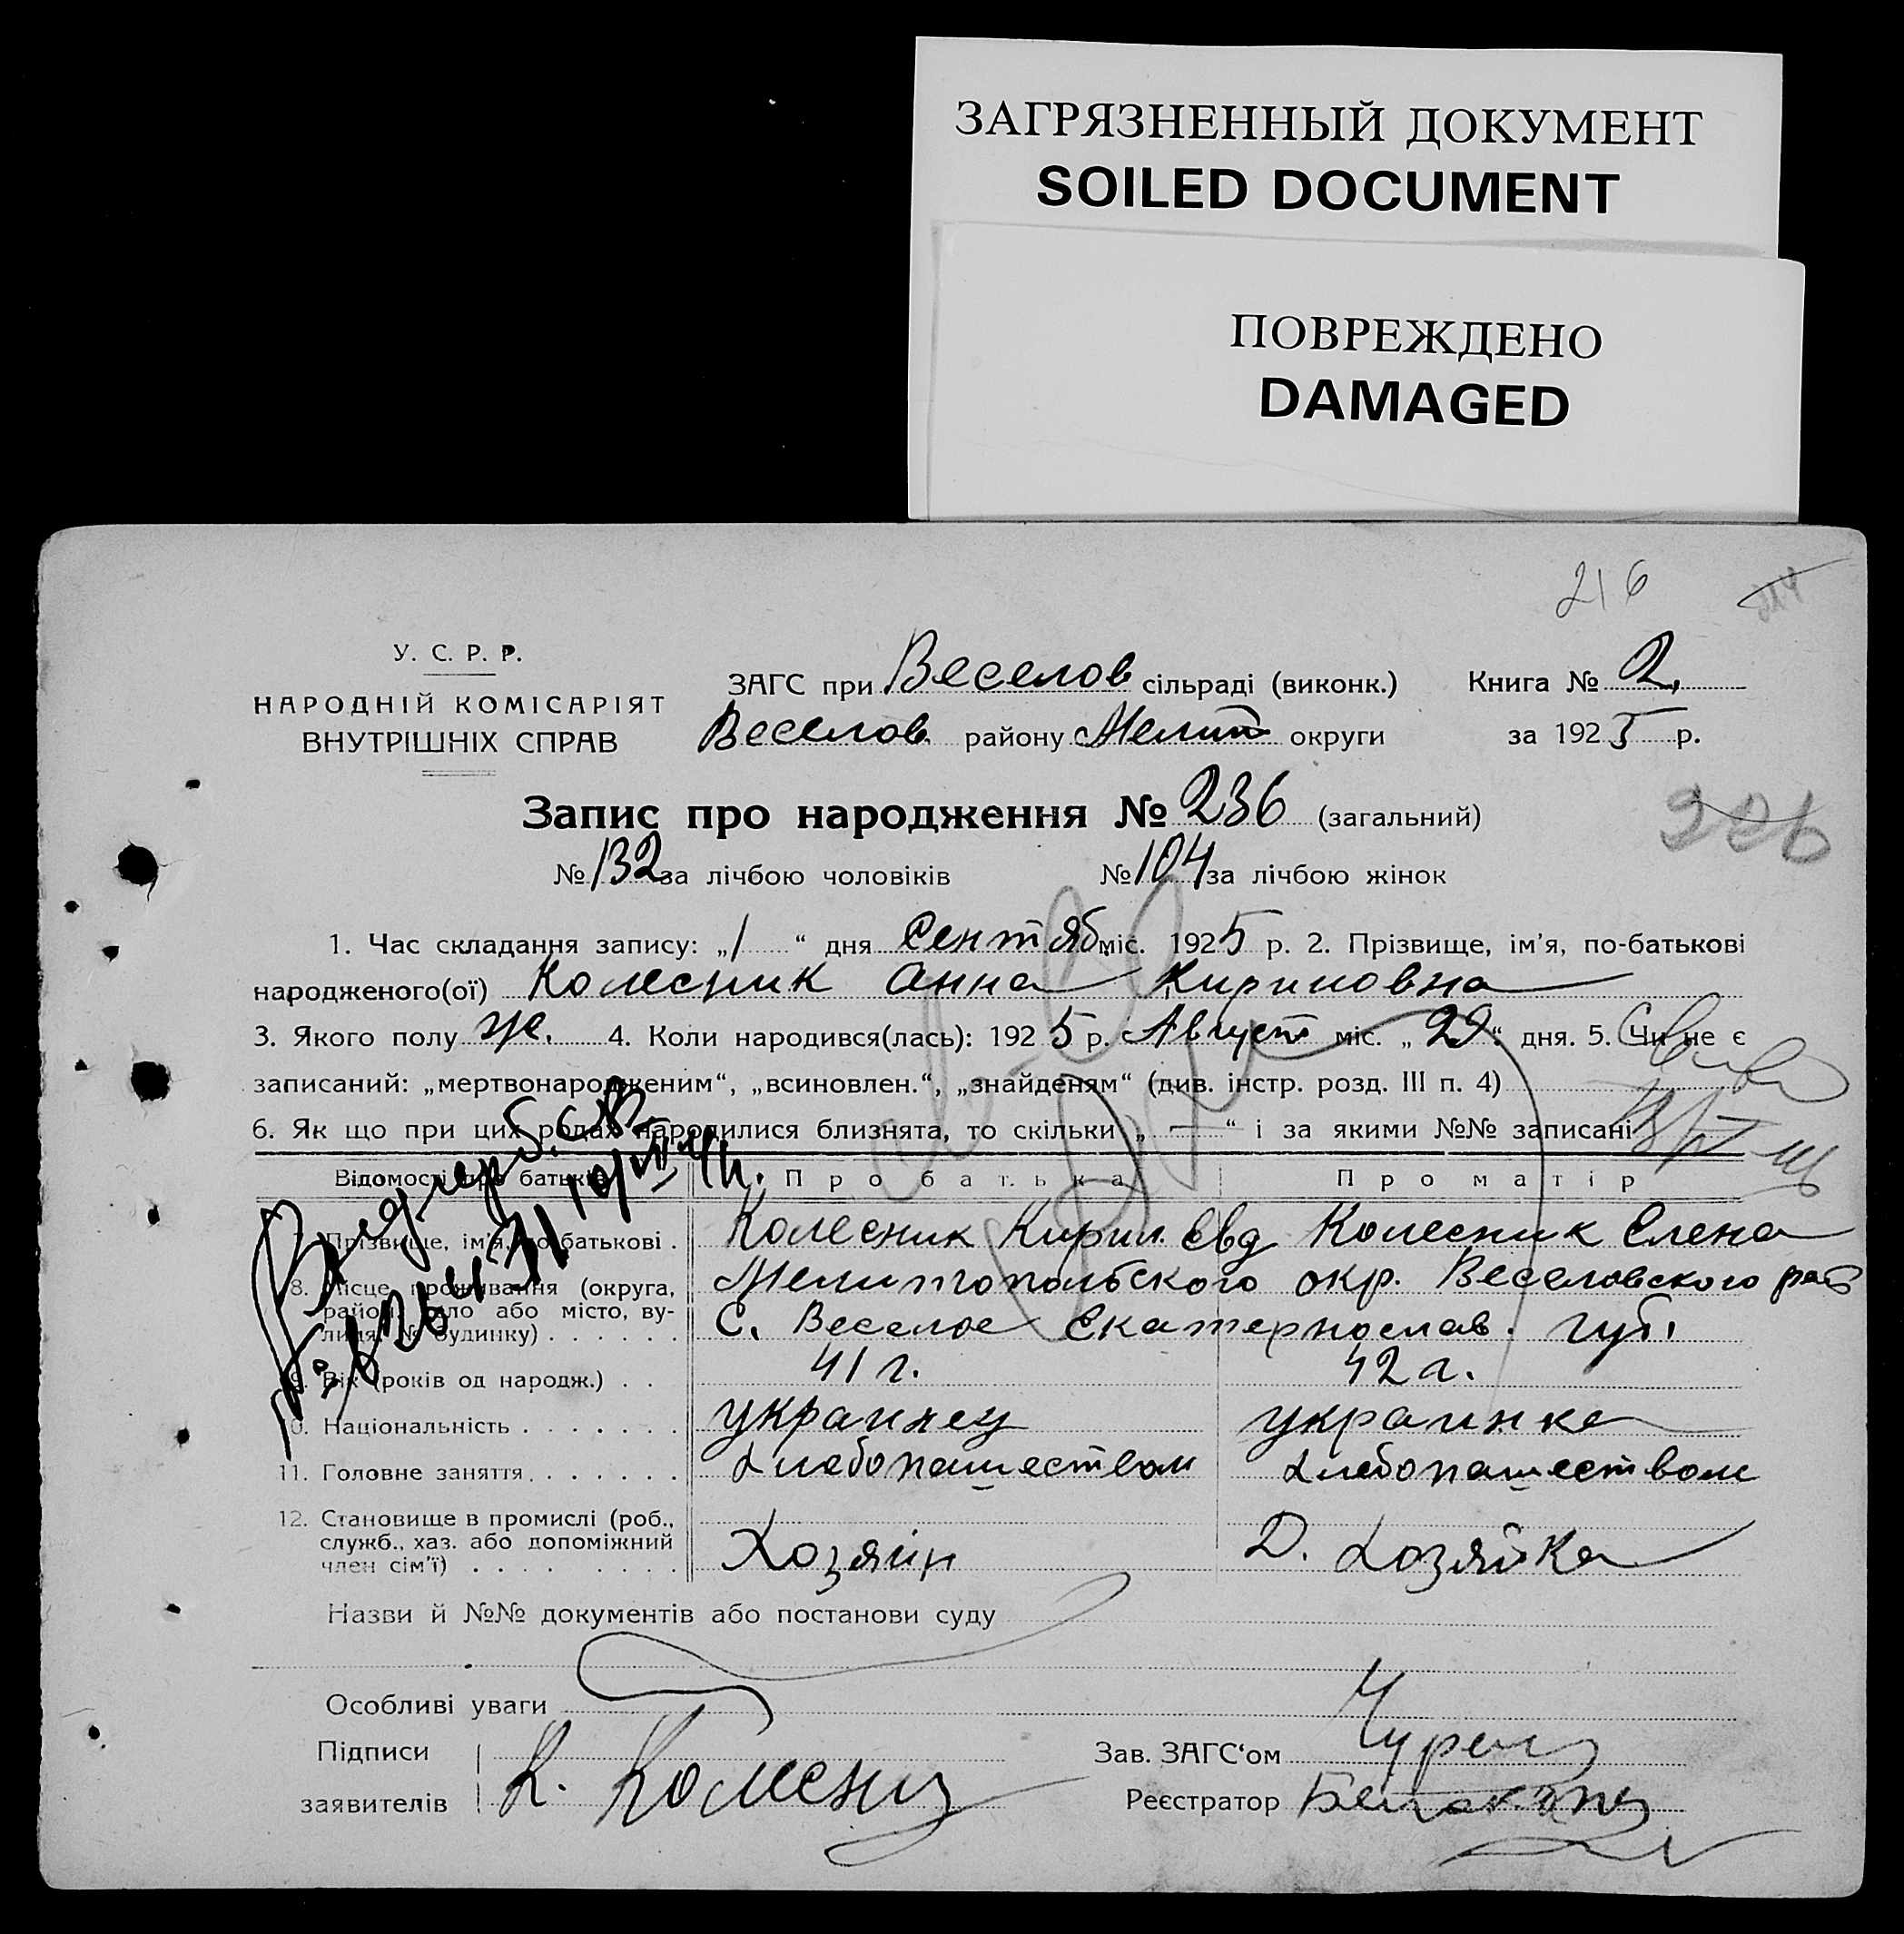 ЗАГРЯЗНЕННЫЙ ДОКУМЕНТ
SOILED DOCUMENT
ПОВРЕЖДЕНО
DAMAGED
216
У. С. Р. Р.
НАРОДНІЙ КОМІСАРІЯТ
ВНУТРІШНІХ СПРАВ
ЗАГС при Веселов сільраді (виконк.) Книга № 2,
Веселов. району Мелит округи за 1925 р.
Запис про народження № 236 (загальний)
226
№ 132 за лічбою чоловіків № 104 за лічбою жінок
1. Час складання запису: „1“ дня Сентяб міс. 1925 р. 2. Прізвище, ім’я, по-батькові
народженого(ої) Колесник Анна Кириловна
3. Якого полу же. 4. Коли народився(лась): 1925 р. Август міс. „29“ дня. 5. Чи не є
записаний: „мертвонародженим“, „всиновлен.“, „знайденям“ (див. інстр. розд. III п. 4)
6. Як що при цих родах народилися близнята, то скільки „—“ і за якими №№ записані
Відомості про батьків Про батька Про матір
7. Прізвище, ім’я, по-батькові . Колесник Кирил. Евд Колесник Елена
8. Місце проживання (округа, район, село або місто, вулиця, № будинку) . . . . . . Мелитопольского окр. Веселовского
С. Веселое Екатеринослав. губ.
9. Вік (років од народж.) . . 41 г. 42 г.
10. Національність . . . . . . . украинец украинка
11. Головне заняття . . . . . . . хлебопашеством хлебопашеством
12. Становище в промислі (роб.,
служб., хаз. або допоміжний
член сім’ї) . . . . Хозяин Д. хозяйка
Назви й №№ документів або постанови суду
Особливі уваги
Підписи
заявителів К. Колесник
Зав. ЗАГС‘ом
Реєстратор